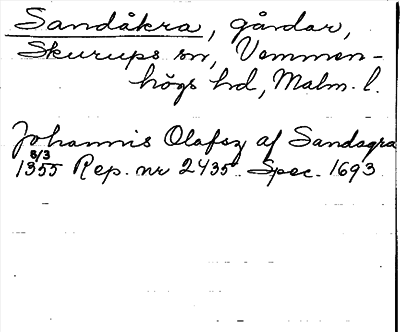 Sandåkra, gårdar,
Skurups sn, Vemmen-
högs hd, Malm. l.
Johannis Olafsz af Sandagra
8/3
1355 Rep. nr 2435. Spec. 1693